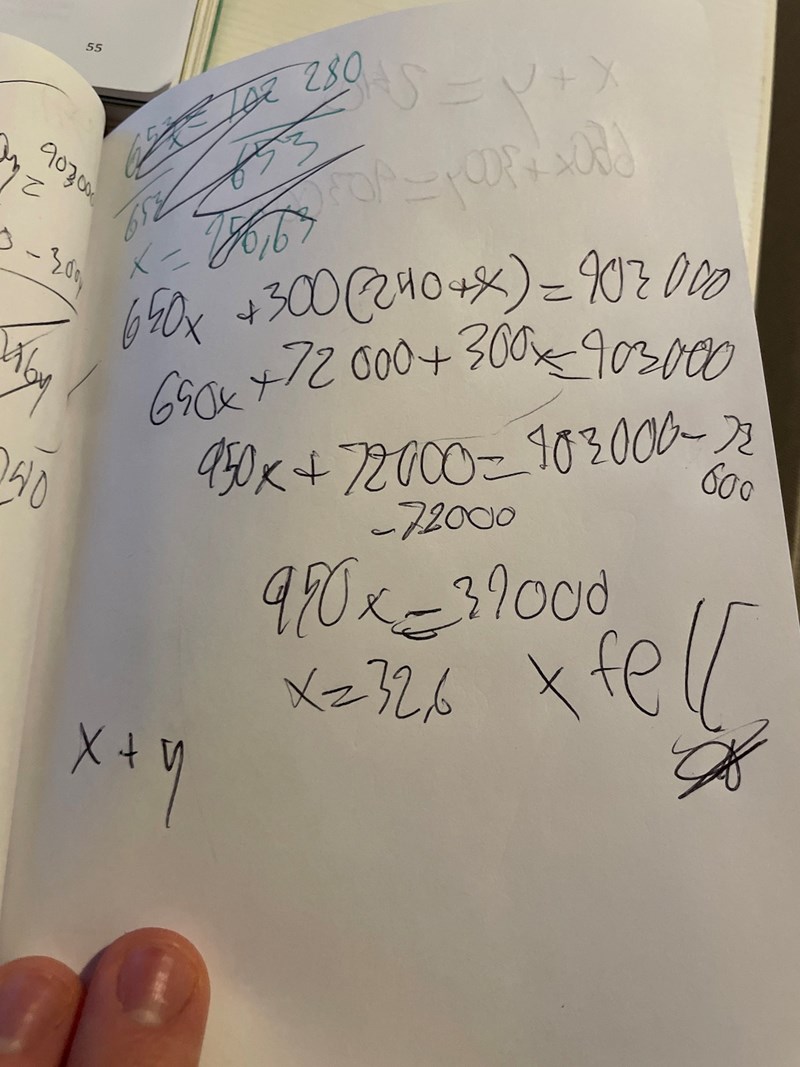 55
903000
653x = 102 280
653 653
x = 256,63
650x + 300(240+x) = 903 000
650x + 72 000 + 300x = 903000
950x + 72000 = 903000 - 72
000
-72000
950x = 39000
x = 32,6 x fel
x + y